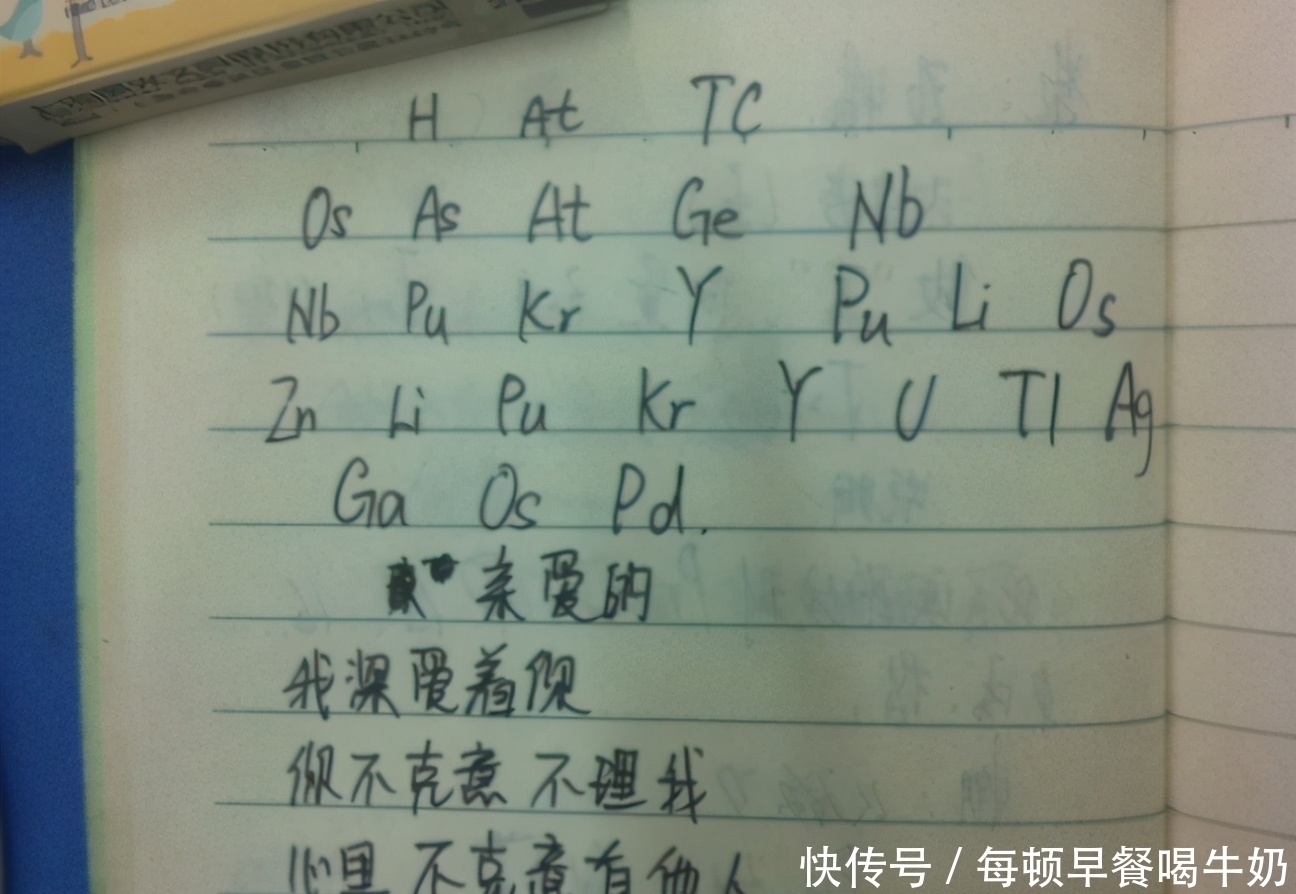 H At TC
Os As At Ge Nb
Nb Pu Kr Y Pu Li Os
Zn Li Pu Kr Y U Tl Ag
Ga Os Pd.
亲爱的
我深爱着你
你不克意不理我
心里不克意有他人
快传号 / 每顿早餐喝牛奶